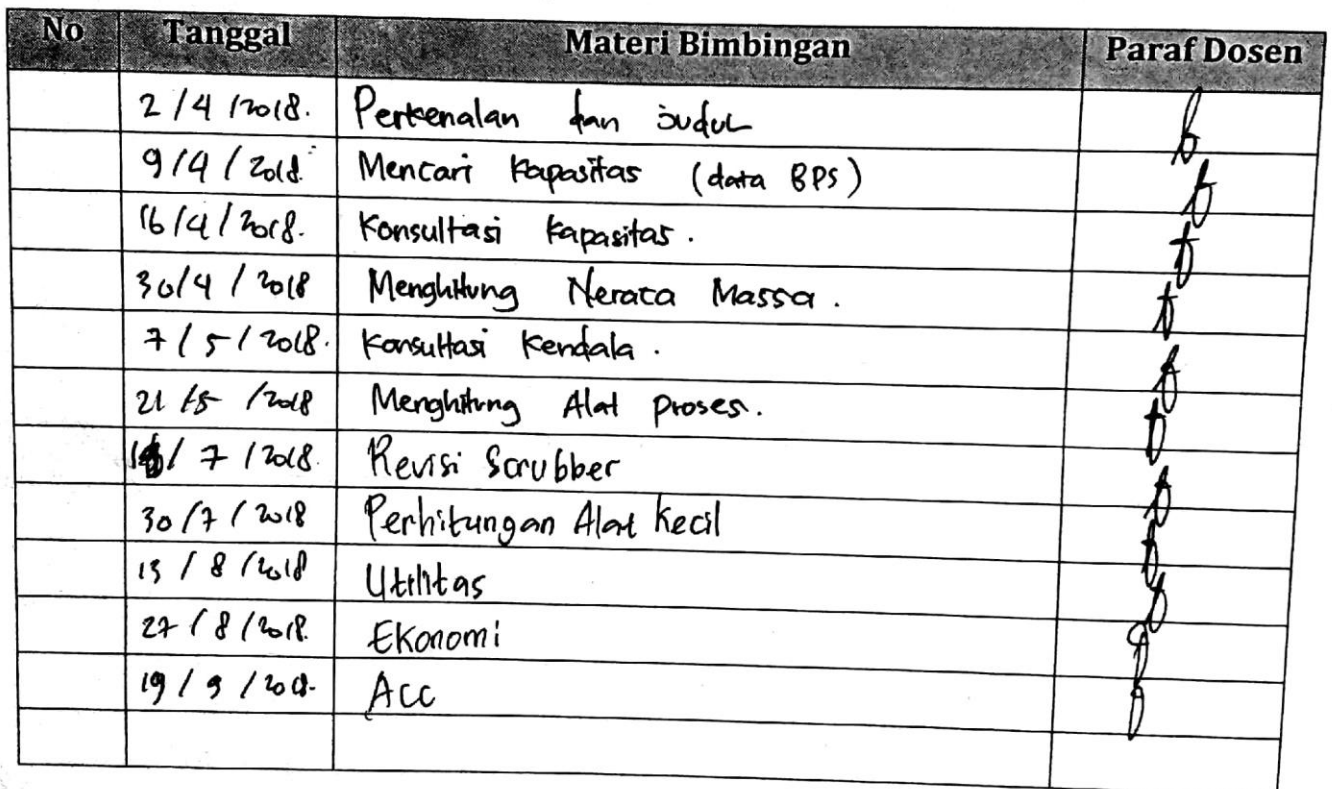 No Tanggal Materi Bimbingan Paraf Dosen
2/4/2018. Perkenalan dan judul
9/4/2018. Mencari kapasitas (data BPS)
16/4/2018. Konsultasi kapasitas.
30/4/2018 Menghitung Neraca Massa.
7/5/2018. Konsultasi kendala.
21/5/2018 Menghitung Alat proses.
/7/2018. Revisi Scrubber
30/7/2018 Perhitungan Alat Kecil
/8/2018 Utilitas
27/8/2018. Ekonomi
19/9/2018. Acc